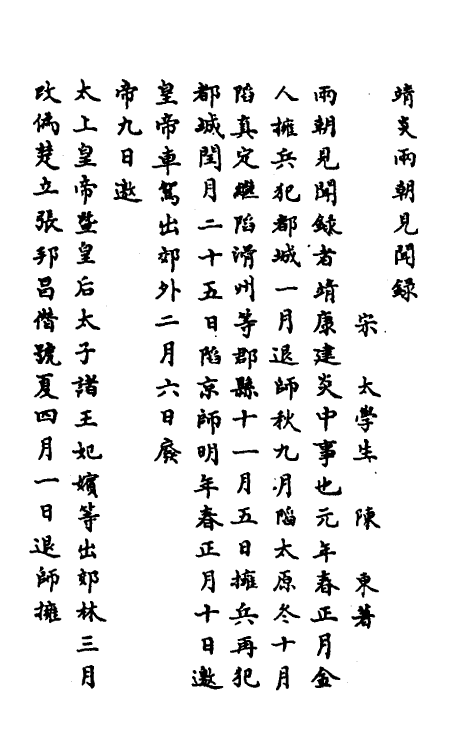 靖炎兩朝見聞錄
宋 太學生 陳 東著
兩朝見聞錄者靖康建炎中事也元年春正月金
人擁兵犯都城一月退師秋九月陷太原冬十月
陷真定繼陷滑州等郡縣十一月五日擁兵再犯
都城閏月二十五日陷京師明年春正月十日邀
皇帝車駕出郊外二月六日廢
帝九日邀
太上皇帝暨皇后太子諸王妃嬪等出郊林三月
改偽楚立張邦昌僭號夏四月一日退師擁